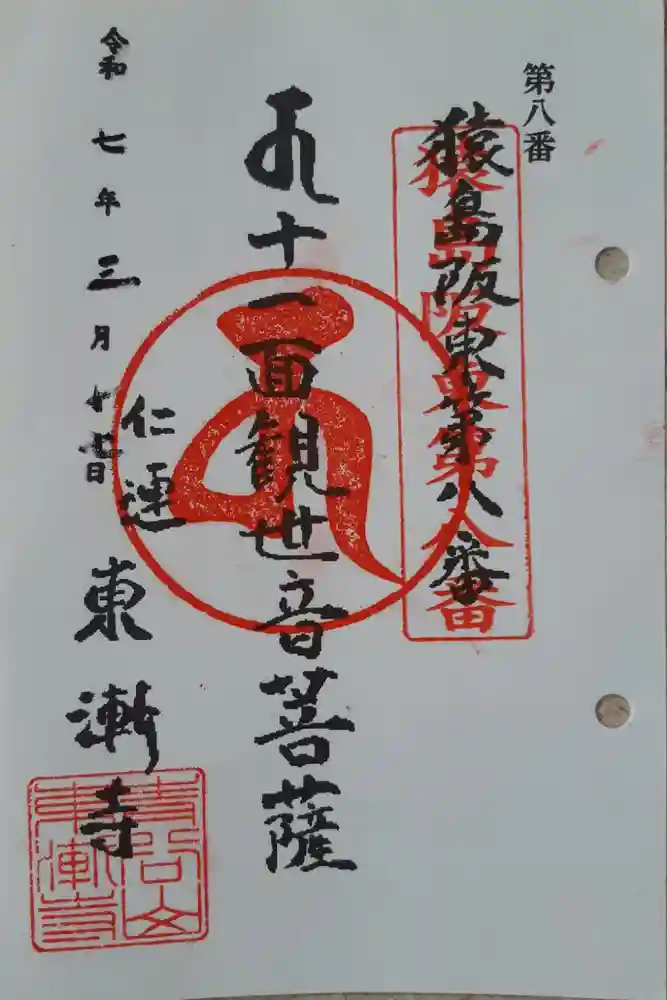 第八番
猿島阪東第八番
猿島阪東第八番
十一面観世音菩薩
仁連
東漸寺
令和七年三月十七日
東漸寺